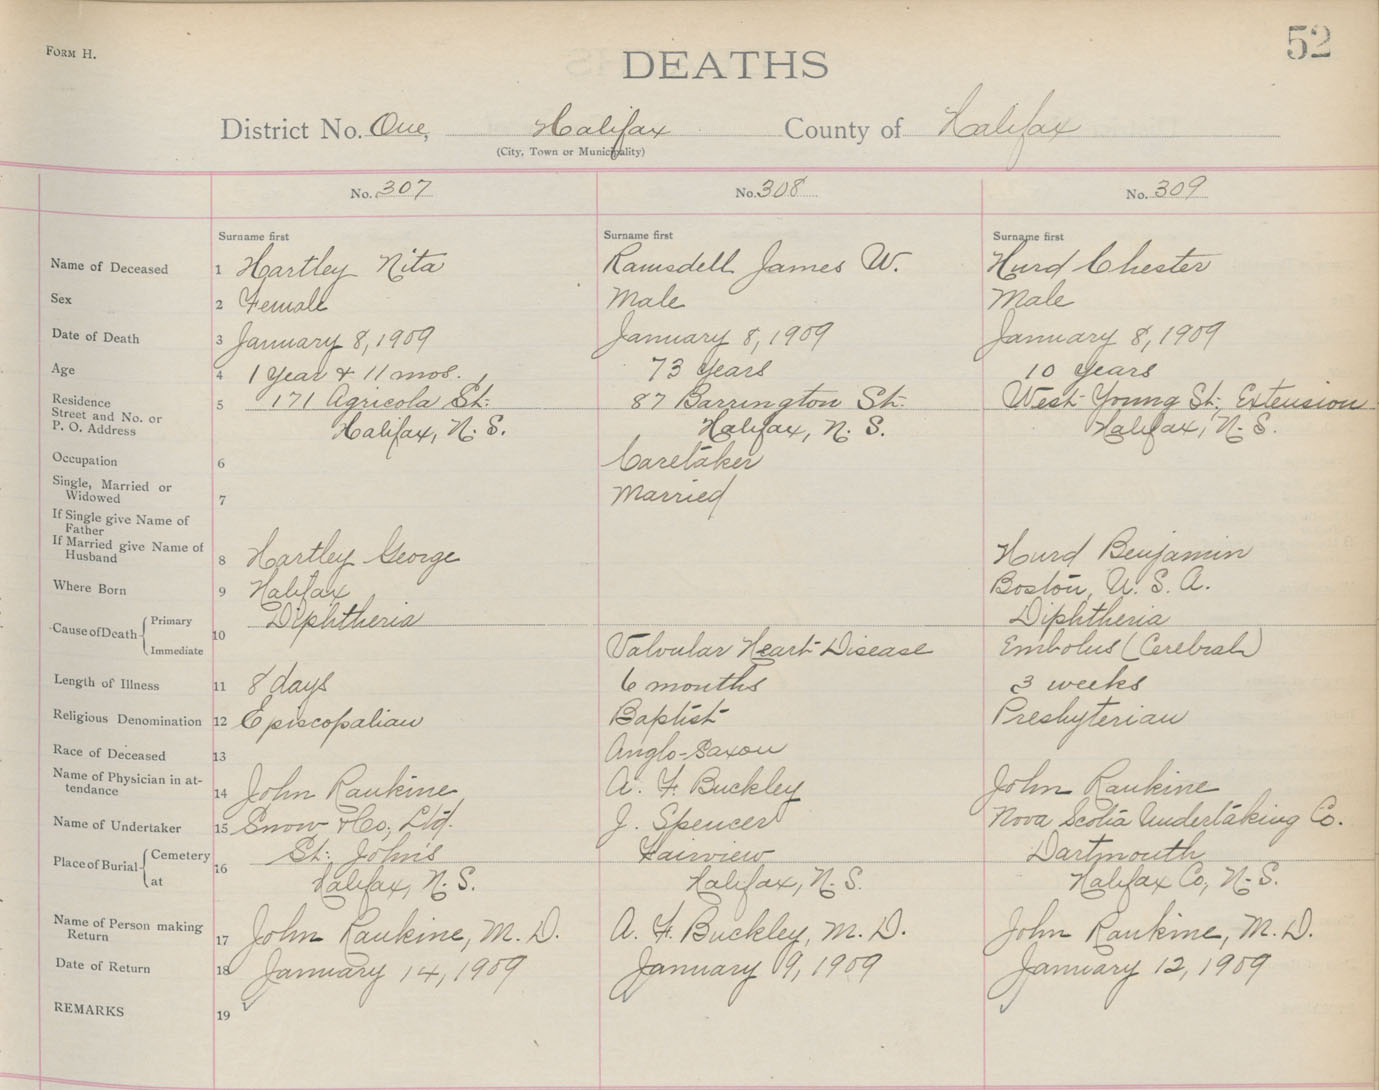 FORM H.
52
DEATHS
District No. One, Halifax County of Halifax
(City, Town or Municipality)
No. 307 No. 308 No. 309
Surname first Surname first Surname first
Name of Deceased 1 Hartley Nita Ramsdell James W. Hurd Chester
Sex 2 Female Male Male
Date of Death 3 January 8, 1909 January 8, 1909 January 8, 1909
Age 4 1 Year & 11 mos. 73 Years 10 Years
Residence Street and No. or P. O. Address 5 171 Agricola St. 87 Barrington St. West Young St. Extension
Halifax, N.S. Halifax, N.S. Halifax, N.S.
Occupation 6 Caretaker
Single, Married or Widowed 7 Married
If Single give Name of Father
If Married give Name of Husband 8 Hartley George Hurd Benjamin
Where Born 9 Halifax Boston, U.S.A.
Cause of Death Primary 10 Diphtheria Diphtheria
Immediate Valvular Heart Disease Embolus (Cerebral)
Length of Illness 11 8 days 6 months 3 weeks
Religious Denomination 12 Episcopalian Baptist Presbyterian
Race of Deceased 13 Anglo-Saxon
Name of Physician in attendance 14 John Rankine A. F. Buckley John Rankine
Name of Undertaker 15 Snow & Co, Ltd. J. Spencer Nova Scotia Undertaking Co.
Place of Burial Cemetery 16 St. John's Fairview Dartmouth
at Halifax, N.S. Halifax, N.S. Halifax Co, N.S.
Name of Person making Return 17 John Rankine, M.D. A. F. Buckley, M.D. John Rankine, M.D.
Date of Return 18 January 14, 1909 January 9, 1909 January 12, 1909
REMARKS 19